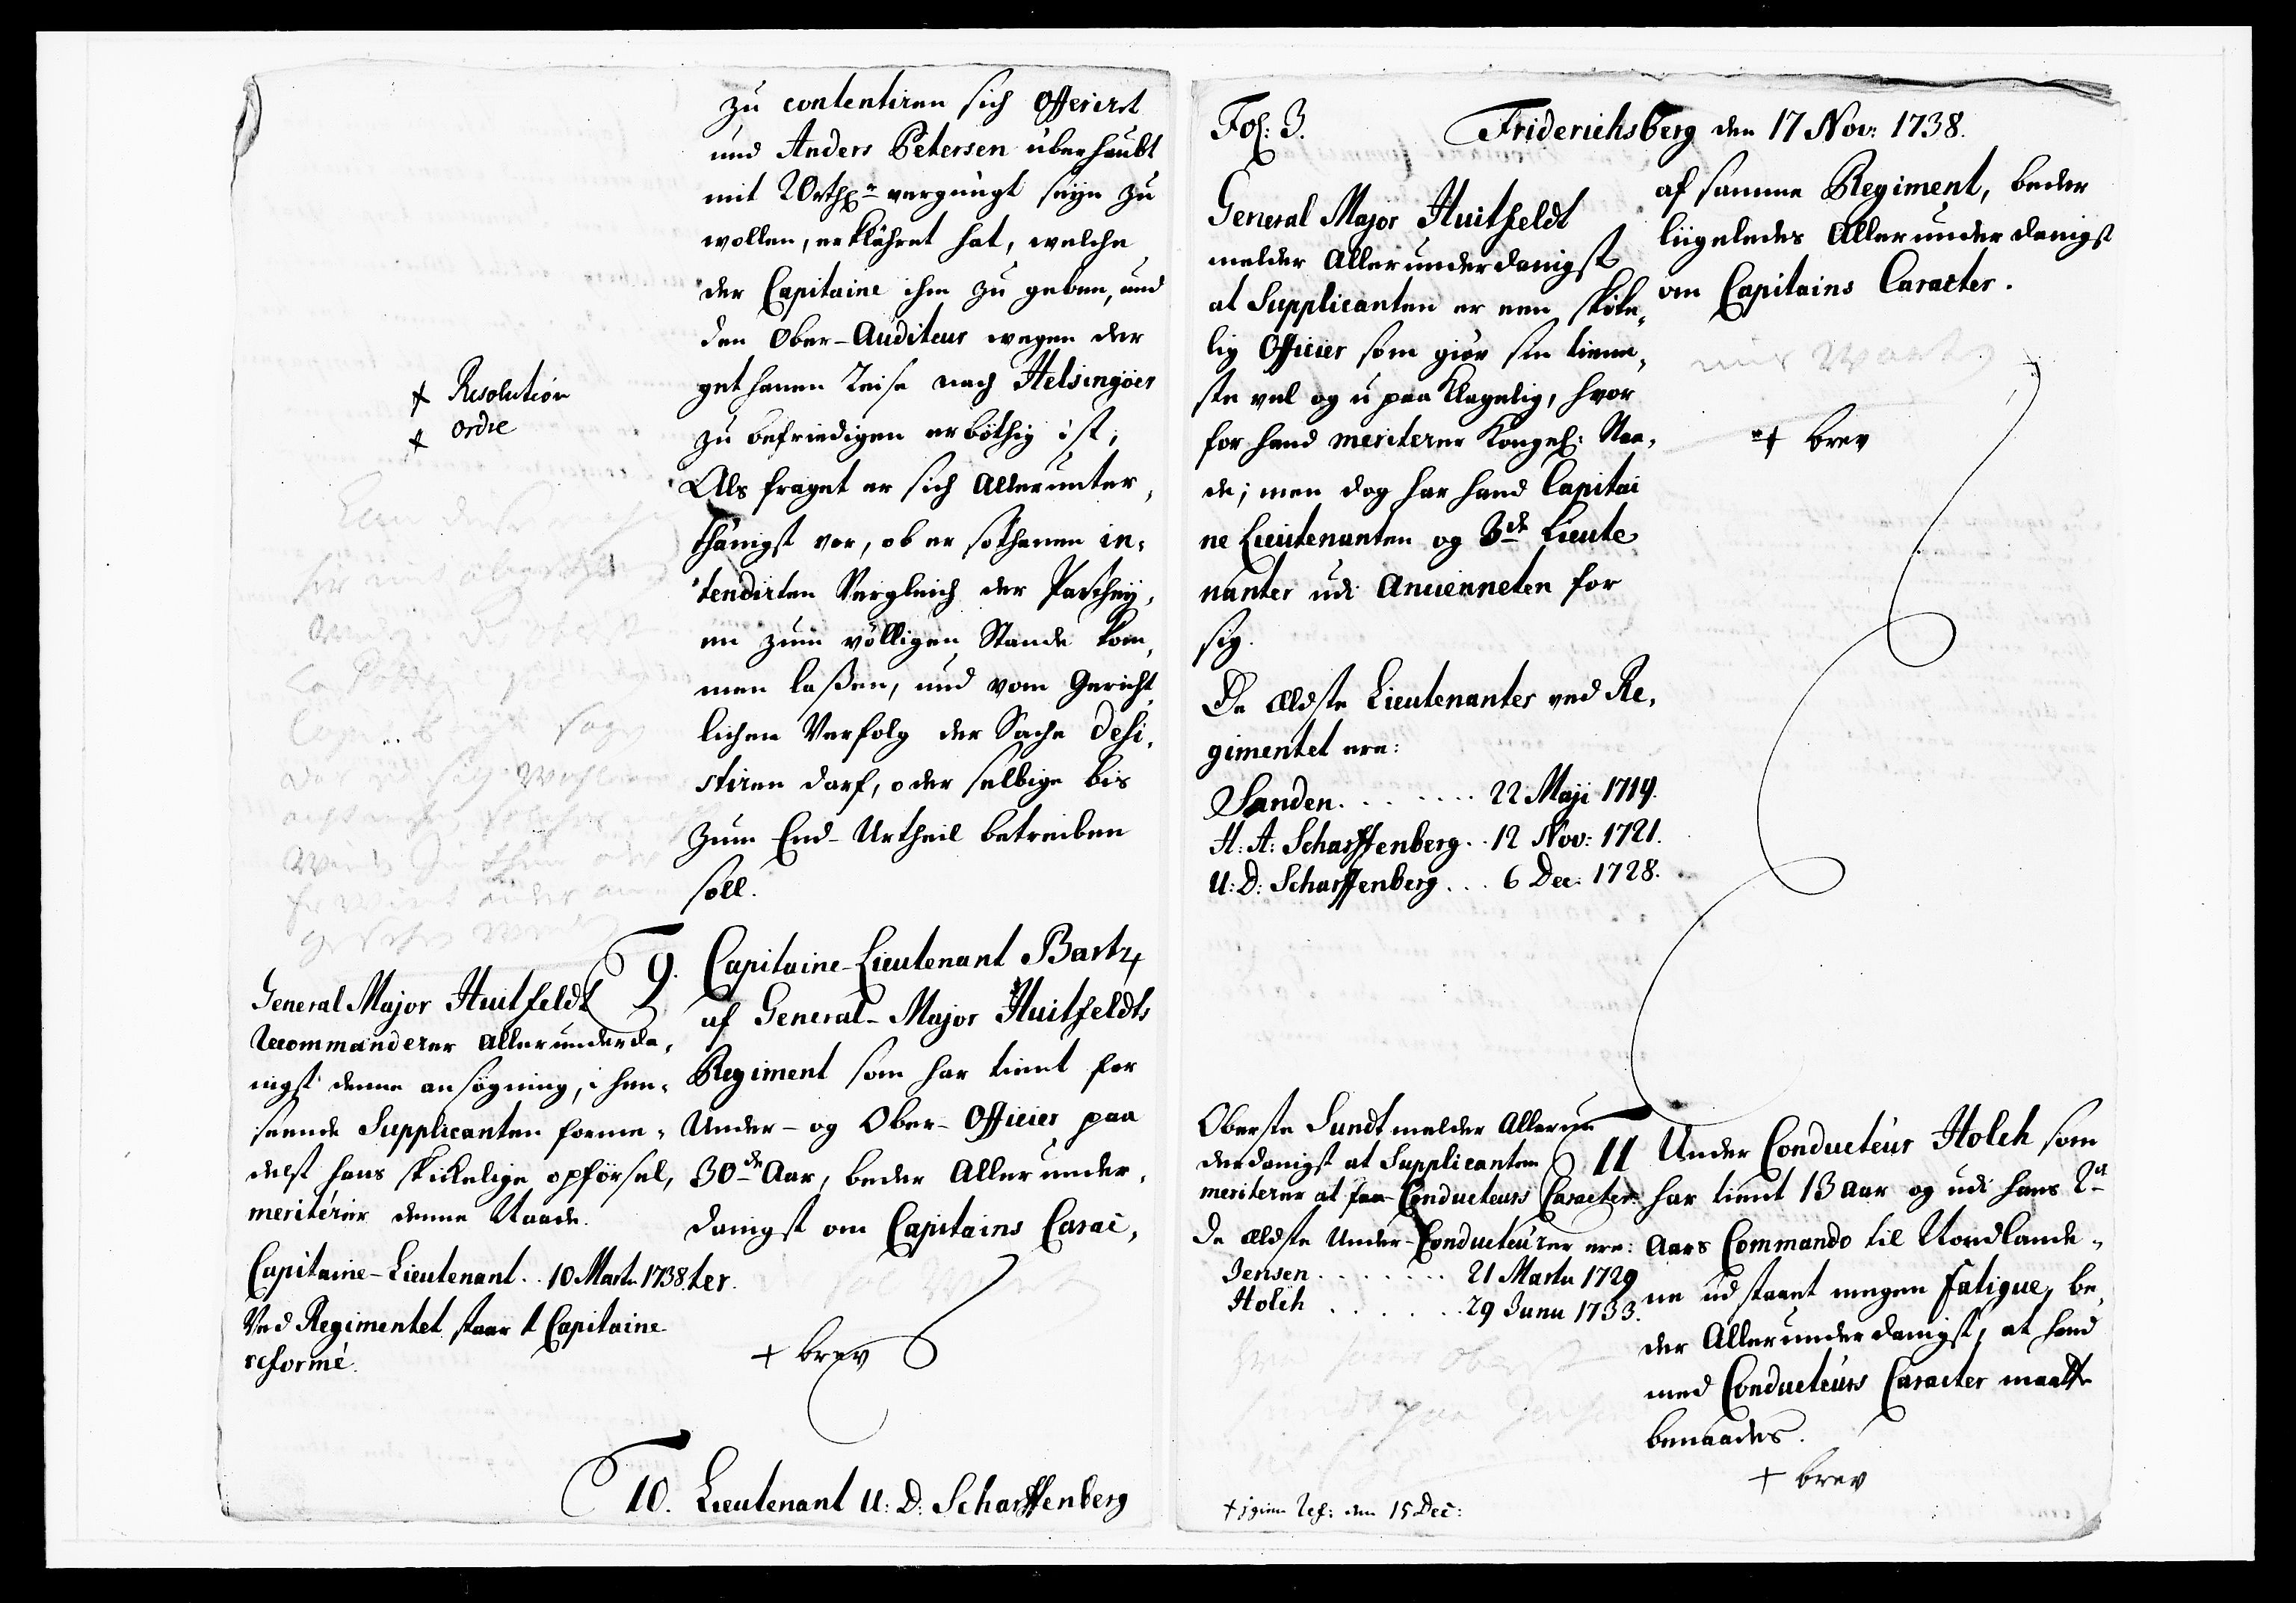 zu contentiren sich offerirt
und Anders Petersen überhaubt
mit 20 rthlr vergnügt seyn zu
wollen, erklähret hat, welche
der Capitaine ihm zu geben, und
den Ober-Auditeur wegen der
gethanen Reise nach Helsingöer
zu befriedigen erböthig ist;
Als fraget er sich allerunter,
thänigst vor, ob er sothanen in,
tendirten Vergleich der Parthey,
en zum völligen Stande kom,
men laßen, und vom Gericht,
lichen Verfolg der Sache desi,
stiren darf, oder selbige bis
zum End-Urtheil betreiben
soll.
+ Resolution
+ ordre
General Major Huitfeldt
recommanderer allerunderda,
nigst denne ansøgning, i hen,
seende Supplicanten forme,
delst hans skickelige opførsel,
meriterer denne Naade.
Capitaine-Lieutenant .. 10 Marti 1738.
Ved Regimentet staar 1 Capitaine
reformé.
9. Capitaine-Lieutenant Bartz
af General-Major Huitfeldts
Regiment som har tient for
Under- og Ober-Officier paa
30de Aar, beder Allerunder,
danigst om Capitains Carac,
ter.
+ brev
10. Lieutenant U: D: Scharffenberg
Fol: 3.
Friderichsberg den 17 Nov: 1738.
General Major Huitfeldt
melder Allerunderdanigst
at Supplicanten er een skike,
lig Officier som giør sin tiene,
ste vel og upaaklagelig, hvor
for hand meriterer Kongel: Naa,
de; men dog har hand Capitai
ne Lieutenanten og 3de Lieute
nanter udi Ancienneten for
sig.
De ældste Lieutenanter ved Re,
gimentet ere:
Sanden ........ 22 Maji 1719.
H: A: Scharffenberg .. 12 Nov: 1721.
U: D: Scharffenberg ... 6 Dec: 1728.
af samme Regiment, beder
liigeledes Allerunderdanigst
om Capitains Caracter.
+ brev
Oberste Sundt melder Allerun
derdanigst at Supplicanten
meriterer at faa Conducteurs Caracter.
De ældste Under-Conducteurer ere:
Jensen ....... 21 Martii 1729
Holch ....... 29 Junii 1733.
11 Under Conducteur Holch som
har tient 13 aar og udi hans 2a
Aars Commando til Nordlande,
ne udstaaet megen Fatigue, be,
der Allerunderdanigst, at hand
med Conducteurs Caracter maatte
benaades.
+ brev
+ igien Ref: den 15 Dec: